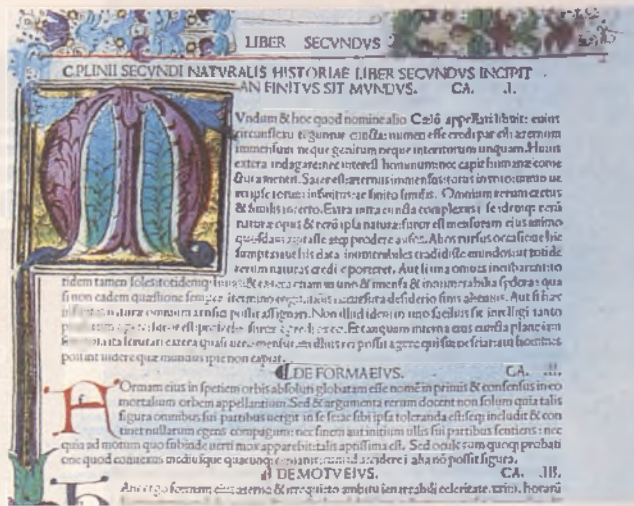 LIBER SECVNDVS
C.PLINII SECVNDI NATVRALIS HISTORIAE LIBER SECVNDVS INCIPIT
AN FINITVS SIT MVNDVS. CA. .I.
Vndum & hoc quod nomine alio Cælũ appellari libuit: cuius
circumflexu teguntur cuncta: numen esse credi par est: æternum
immensum neque genitum neque interiturum unquam. Huius
extera indagare: nec interest hominum: nec capit humanæ
mentis. Sacer est: æternus immensus: totus in toto: immo
ipse totum: infinitus: ac finito similis. Omnium rerum certus
& similis incerto. Extra intra cuncta complexus
naturæ opus & natura: furor est mensuram eius animo
quosdam agitasse atque prodere ausos. Alios rursus occasione hic
sumpta aut his data innumerabiles tradidisse mundos: ut totidē
rerum naturas credi oporteret. Aut si una omnis incubaret: to
tidem tamen soles: totidemque lunas & cætera etiam in uno & immensa & innumerabilia sydera: qua
si non eadem quæstione semper in termino desiderio finis alicuius. Aut si hæc
naturæ omnium artifici possit assignari. Non illud idem in uno facilius sit intelligi tanto
Furor est egredi ex eo. Et tanquam interna eius cuncta plane iam
extera quasi uero mensuram illius rei possit agere qui sui nesciat: aut homines
possint uidere quæ mundus ipse non capiat.
DE FORMA EIVS. CA. .II.
fOrmam eius in speciem orbis absoluti globatam esse nomē in primis & consensus in eo
mortalium orbem appellantium. Sed & argumenta rerum docent non solum quia talis
figura omnibus sui partibus uergit in sese: ac sibi ipsa toleranda est: seque includit & con
tinet nullarum egens compagum: nec finem aut initium ullis sui partibus sentiens: nec
quia ad motum quo subinde uerti mox apparebit: talis aptissima est. Sed oculorum quoque probati
one quod conuexus mediusque quacunque cernatur: cum id accidere in alia nō possit figura.
DE MOTV EIVS. CA. .III.
ergo formam eius æterno & irrequieto ambitu inenarrabili celeritate .xxiiii. horarū